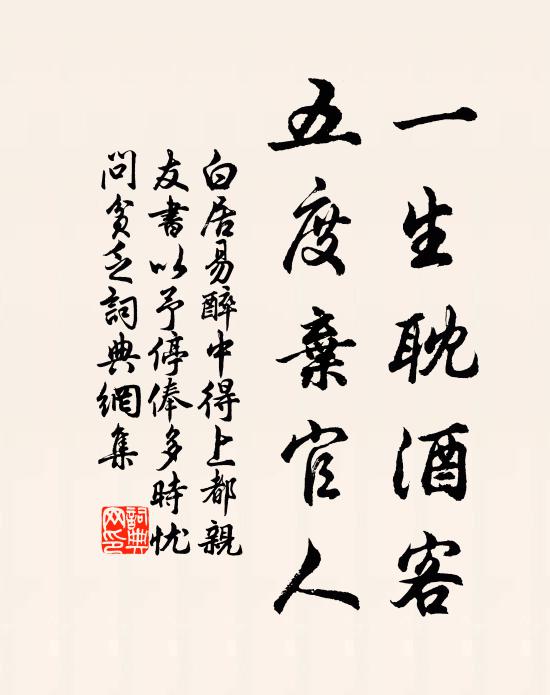 一生耽酒客
五度棄官人
白居易醉中得上都親
友書以予停俸多時忧
問貧乏詞典網集
詞典网印